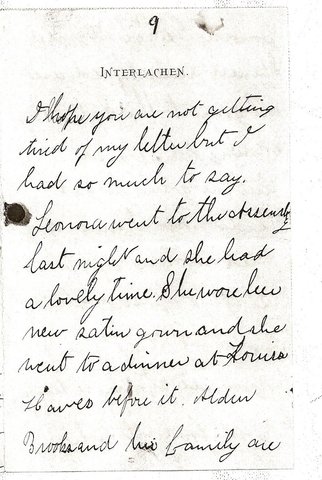 9
INTERLACHEN.
I hope you are not getting
tired of my letter but I
had so much to say.
Leonora went to the Assembly
last night and she had
a lovely time. She wore her
new satin gown and she
went to a dinner at Louisa
Hawes before it. Alden
Brooks and his family are